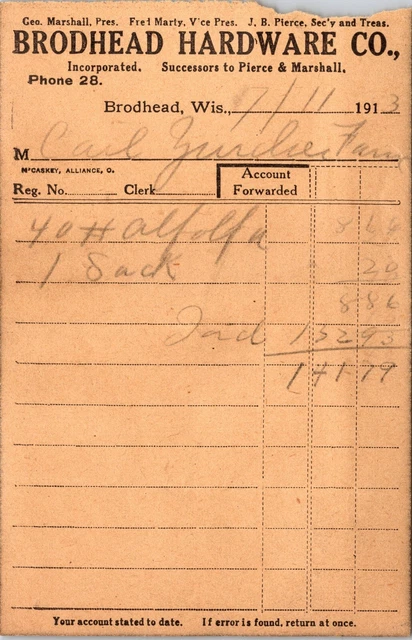 Geo. Marshall, Pres. Fred Marty, Vice Pres. J. B. Pierce, Sec'y and Treas.
BRODHEAD HARDWARE CO.,
Incorporated. Successors to Pierce & Marshall.
Phone 28.
Brodhead, Wis., 7/11 1913
M Carl
McCASKEY, ALLIANCE, O.
Reg. No. Clerk
Account Forwarded
40 # alfalfa
1 Sack 20
886
132 93
141 79
Your account stated to date. If error is found, return at once.